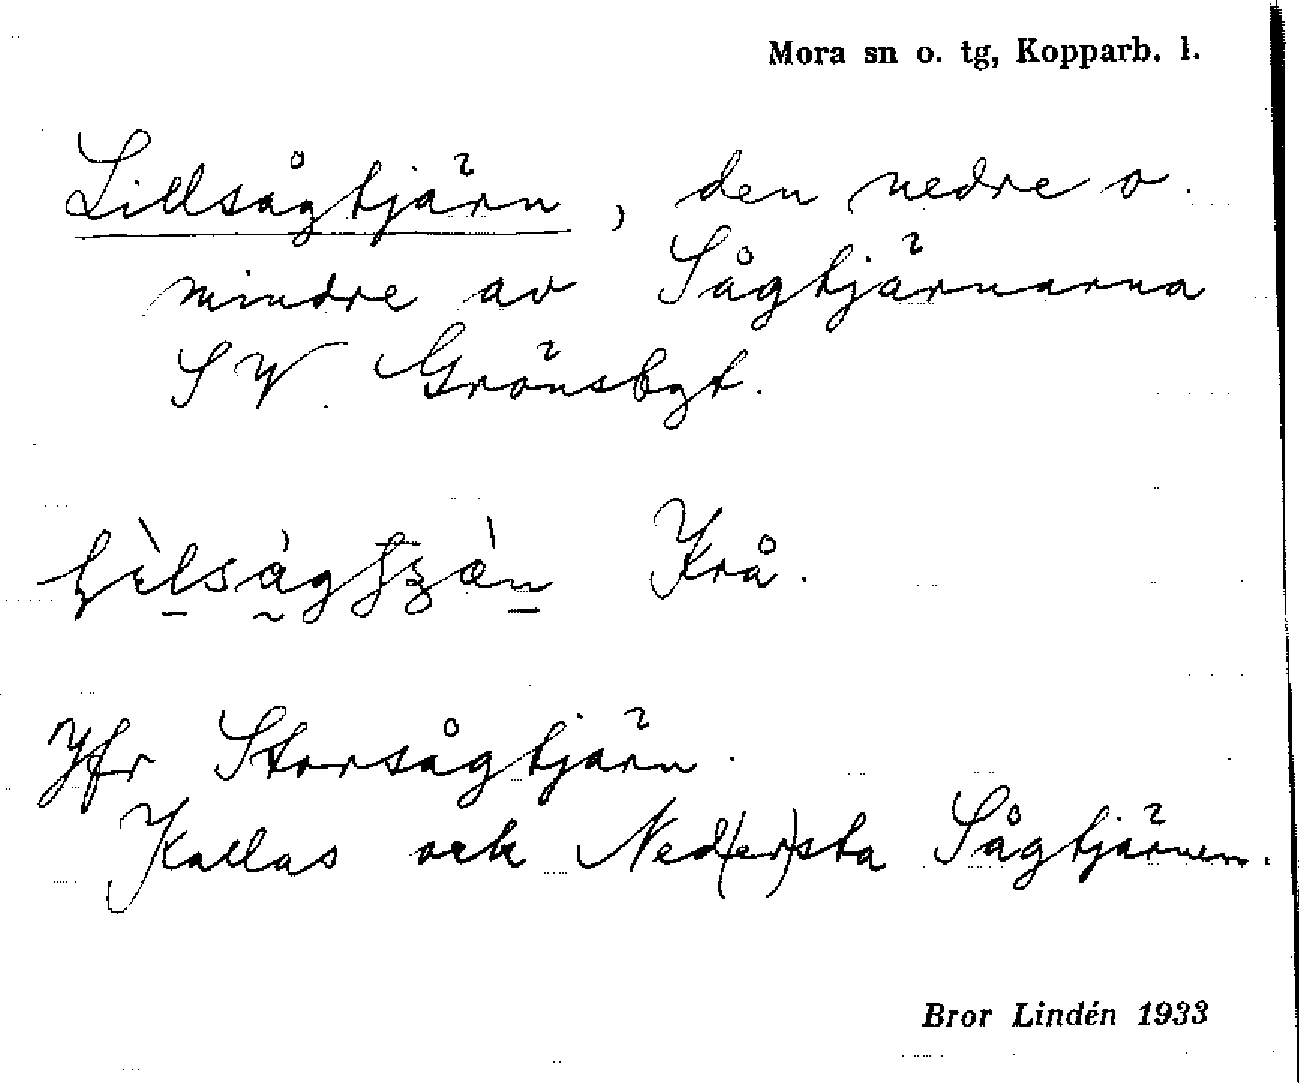 Mora sn o. tg, Kopparb. l.
Lillsågtjärn, den nedre o.
mindre av Sågtjärnarna
SV Grönsbgt.
Krå.
Jfr Storsågtjärn.
Kallas ock Ned(er)sta Sågtjärnen.
Bror Lindén 1933